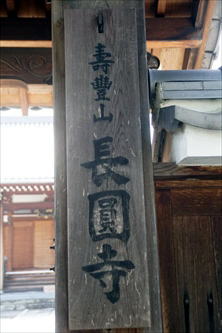 壽豐山
長圓寺